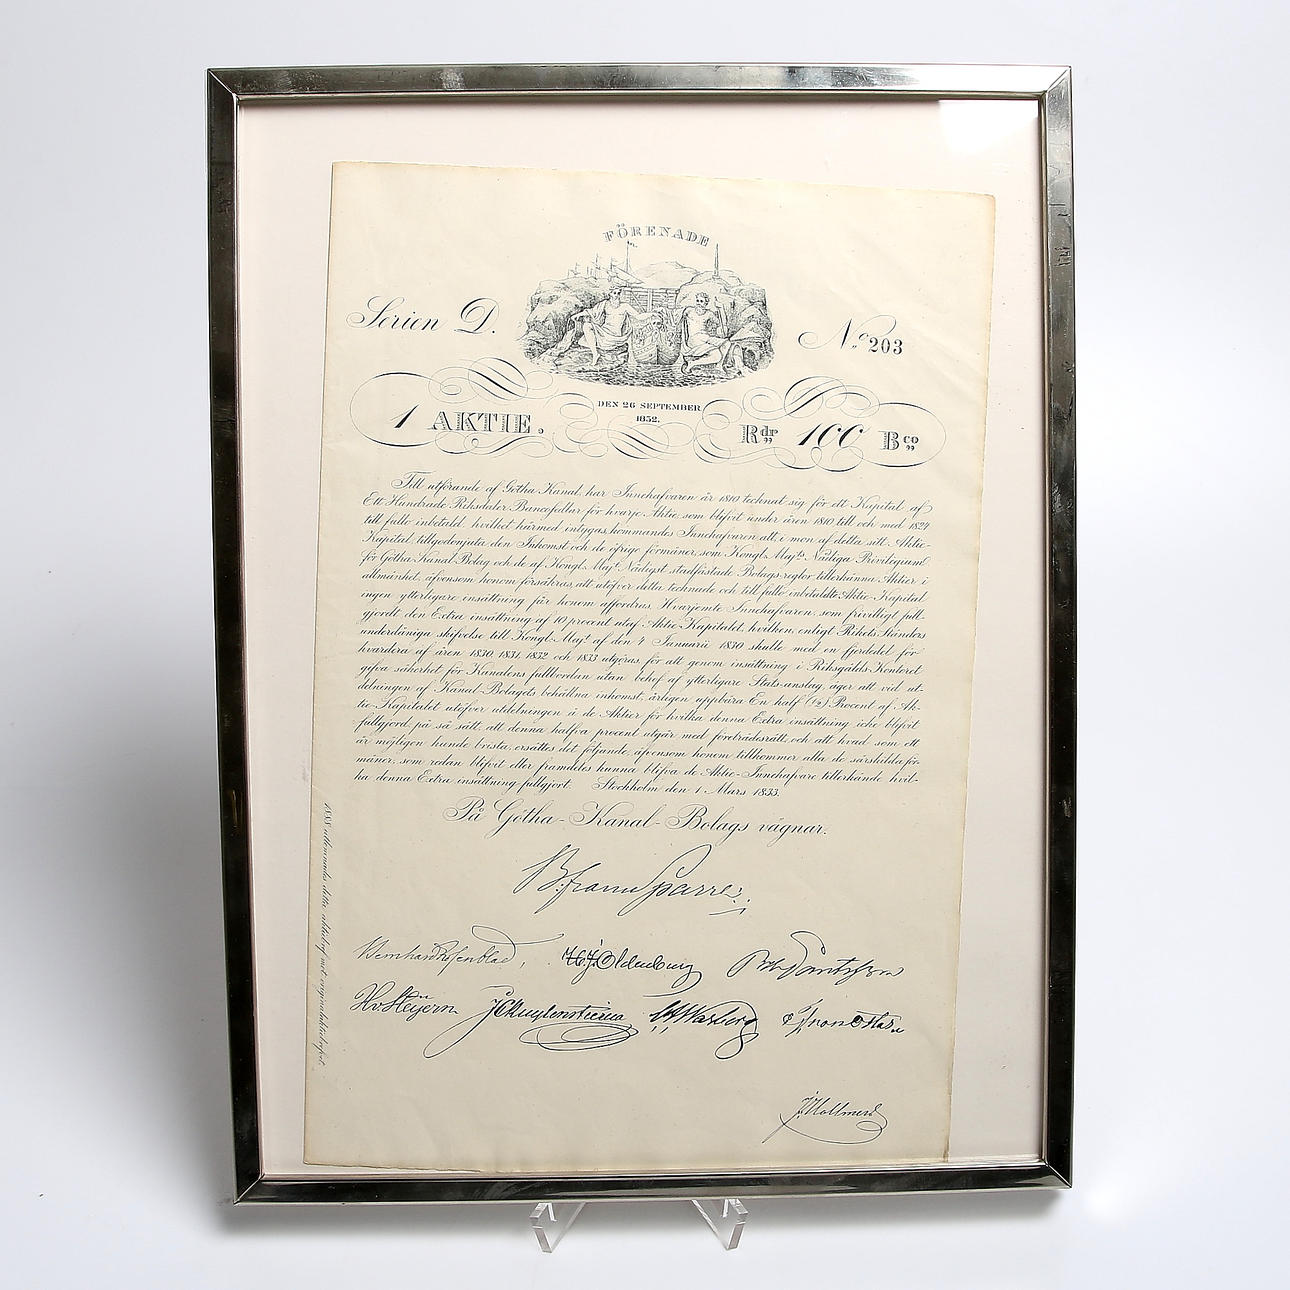 FÖRENADE
Serien D.
No 203
DEN 26 SEPTEMBER
1832.
1 AKTIE.
Rdr 100 Bco
Till utförande af Götha Kanal, har Innehafvaren år 1810 tecknat sig för ett Kapital af
Ett Hundrade Riksdaler Bancosedlar för hvarje Aktie, som blifvit under åren 1810 till och med 1824
till fullo inbetald, hvilket härmed intygas, kommandes Innehafvaren att, i mon af detta sitt Aktie-
Kapital, tillgodonjuta den Inkomst och de öfrige förmåner, som Kongl. Majts Nådiga Privilegium
för Götha Kanal Bolag och de af Kongl. Majt Nådigst stadfästade Bolags-reglor tillerkänna Aktier i
allmänhet, äfvensom honom försäkras, att utöfver detta tecknade och till fullo inbetaldte Aktie-Kapital
ingen ytterligare insättning får honom affordras. Hvarjemte Innehafvaren, som frivilligt full-
gjordt den Extra insättning af 10 procent utaf Aktie-Kapitalet, hvilken, enligt Rikets Ständers
underdåniga skrifvelse till Kongl. Majt af den 7 Januarii 1830 skulle med en fjerdedel för
hvardera af åren 1830, 1831, 1832 och 1833 utgöras, för att genom insättning i Riksgälds-Kontoret
gifva säkerhet för Kanalens fullbordan utan behof af ytterligare Stats-anslag, äger att vid ut-
delningen af Kanal-Bolagets behållna inkomst, årligen uppbära En half (1/2) Procent af Ak-
tie-Kapitalet utöfver utdelningen å de Aktier för hvilka denna Extra insättning icke blifvit
fullgjord; på så sätt, att denna halfva procent utgår med företrädesrätt, och att hvad som ett
år möjligen kunde brista, ersättes det följande, äfvensom honom tillkommer alla de särskilda för-
måner, som redan blifvit eller framdeles kunna blifva de Aktie-Innehafvare tillerkände hvil-
ka denna Extra insättning fullgjort. Stockholm den 1 Mars 1833.
På Götha-Kanal-Bolags vägnar.
B: fram Sparre.
Bernhard Rosenblad, H. J. Oldenburg
H v Heijern J C Kuylenstierna
1888 utlemnades detta aktiebref mot originalaktiebrefvet.